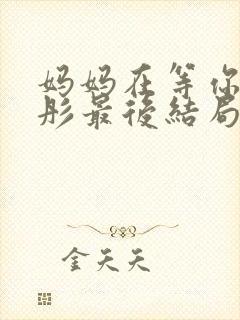 妈妈在等你
彤最後結局
金天天